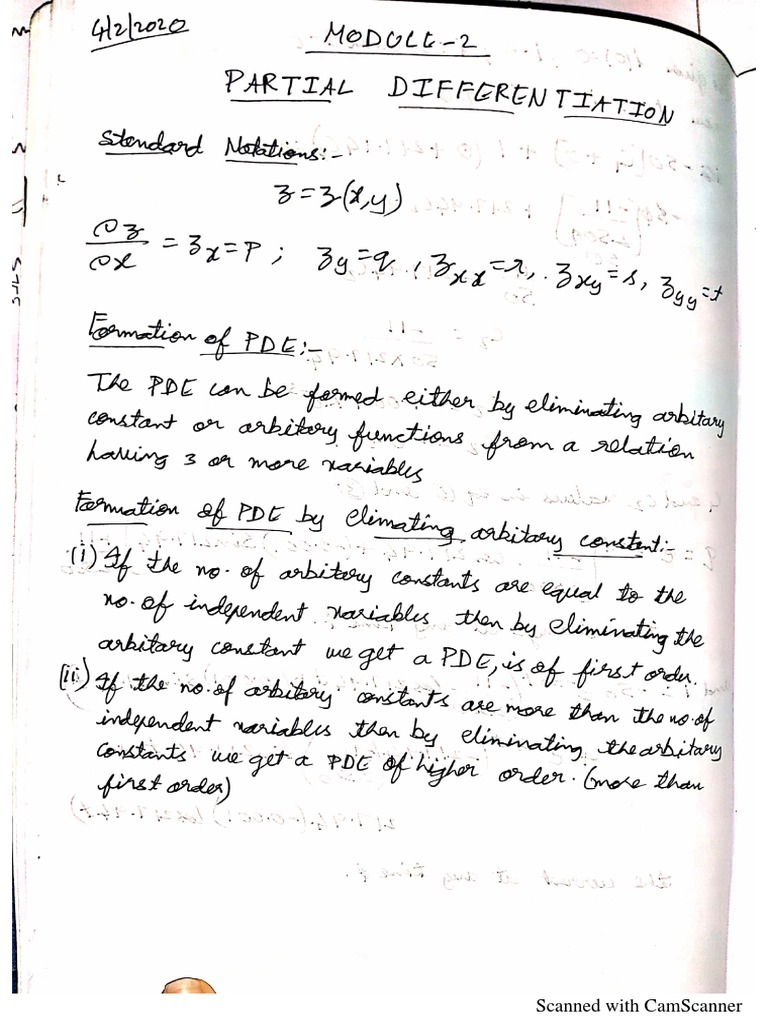 4/2/2020
MODULE-2
PARTIAL DIFFERENTIATION
Standard Notations:-
z = z(x,y)
∂z/∂x = zx = P ; zy = q , zxx = r, zxy = s, zyy = t
Formation of PDE:-
The PDE can be formed either by eliminating arbitary
constant or arbitary functions from a relation
having 3 or more variables
Formation of PDE by elimating arbitary constant:-
(i) If the no. of arbitary constants are equal to the
no. of independent variables then by eliminating the
arbitary constant we get a PDE, is of first order.
(ii) If the no. of arbitary constants are more than the no. of
independent variables then by eliminating the arbitary
constants we get a PDE of higher order. (more than
first order)
Scanned with CamScanner